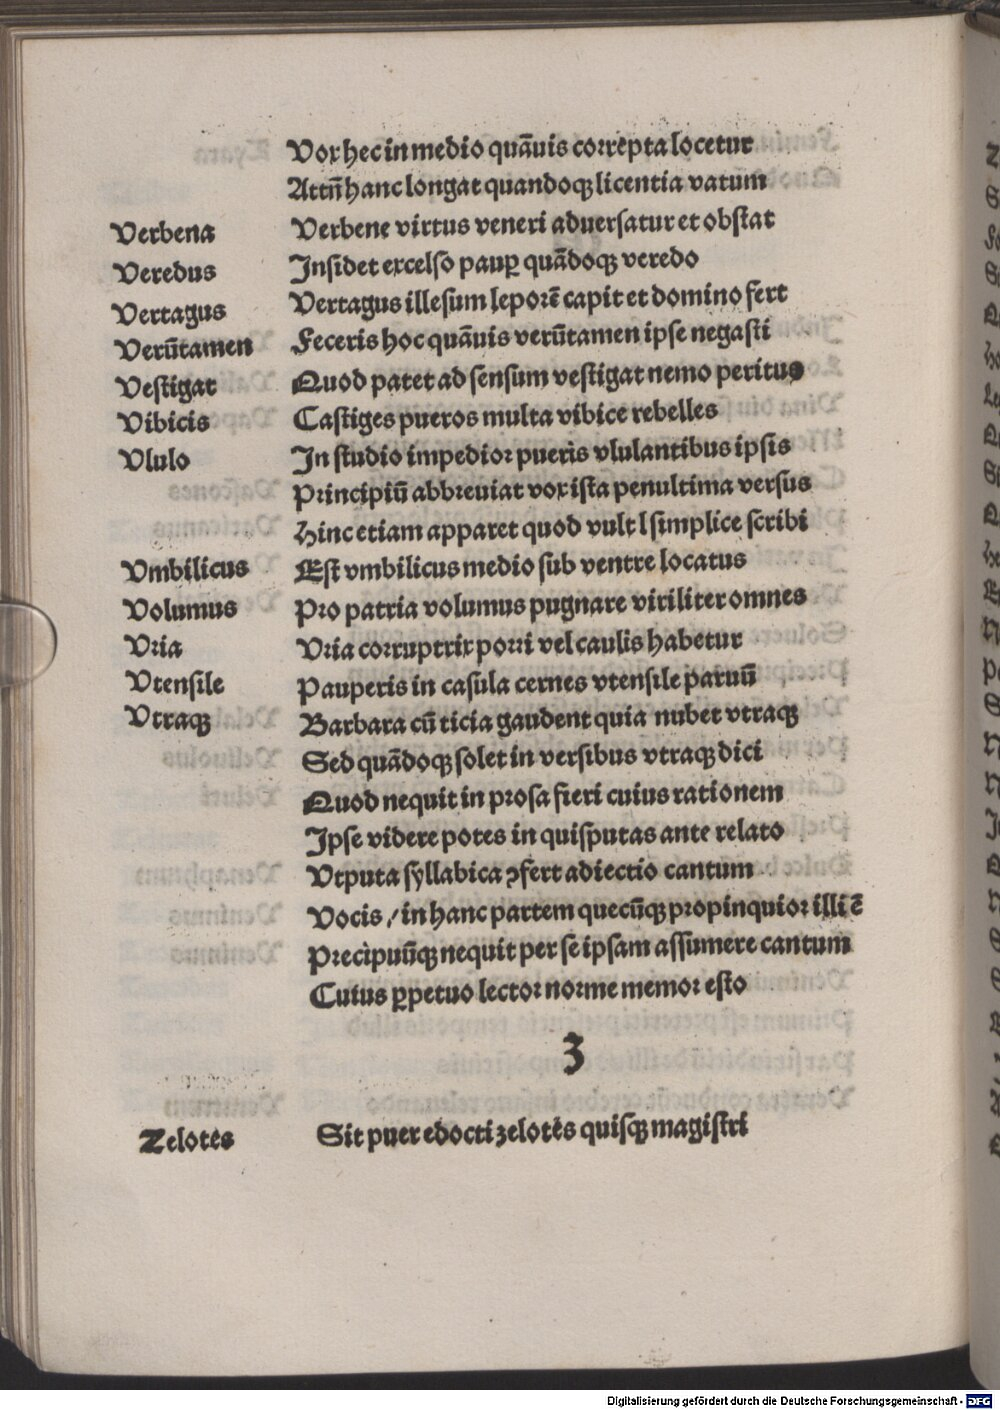 Vox hec in medio quãuis correpta locetur
Attñ hanc longat quandoqꝫ licentia vatum
Verbena Verbene virtus veneri aduersatur et obstat
Veredus Insidet excelso paup̲ quãdoqꝫ veredo
Vertagus Vertagus illesum leporẽ capit et domino fert
Verũtamen Feceris hoc quãuis verũtamen ipse negasti
Vestigat Quod patet ad sensum vestigat nemo peritus
Vibicis Castiges pueros multa vibice rebelles
Vlulo In studio impedior pueris vlulantibus ipsis
Principiũ abbreuiat vox ista penultima versus
Hinc etiam apparet quod vult l simplice scribi
Vmbilicus Est vmbilicus medio sub ventre locatus
Volumus Pro patria volumus pugnare viriliter omnes
Vria Vria corruptrix porri vel caulis habetur
Vtensile Pauperis in casula cernes vtensile paruũ
Vtraqꝫ Barbara cũ ticia gaudent quia nubet vtraqꝫ
Sed quãdoqꝫ solet in versibus vtraqꝫ dici
Quod nequit in prosa fieri cuius rationem
Ipse videre potes in quisputas ante relato
Vtputa syllabica ꝯfert adiectio cantum
Vocis / in hanc partem quecũqꝫ propinquior illi ẽ
Precipuũqꝫ nequit per se ipsam assumere cantum
Cuius p̲petuo lector norme memor esto
Z
Zelotes Sit puer edocti zelotes quisqꝫ magistri
Digitalisierung gefördert durch die Deutsche Forschungsgemeinschaft - DFG